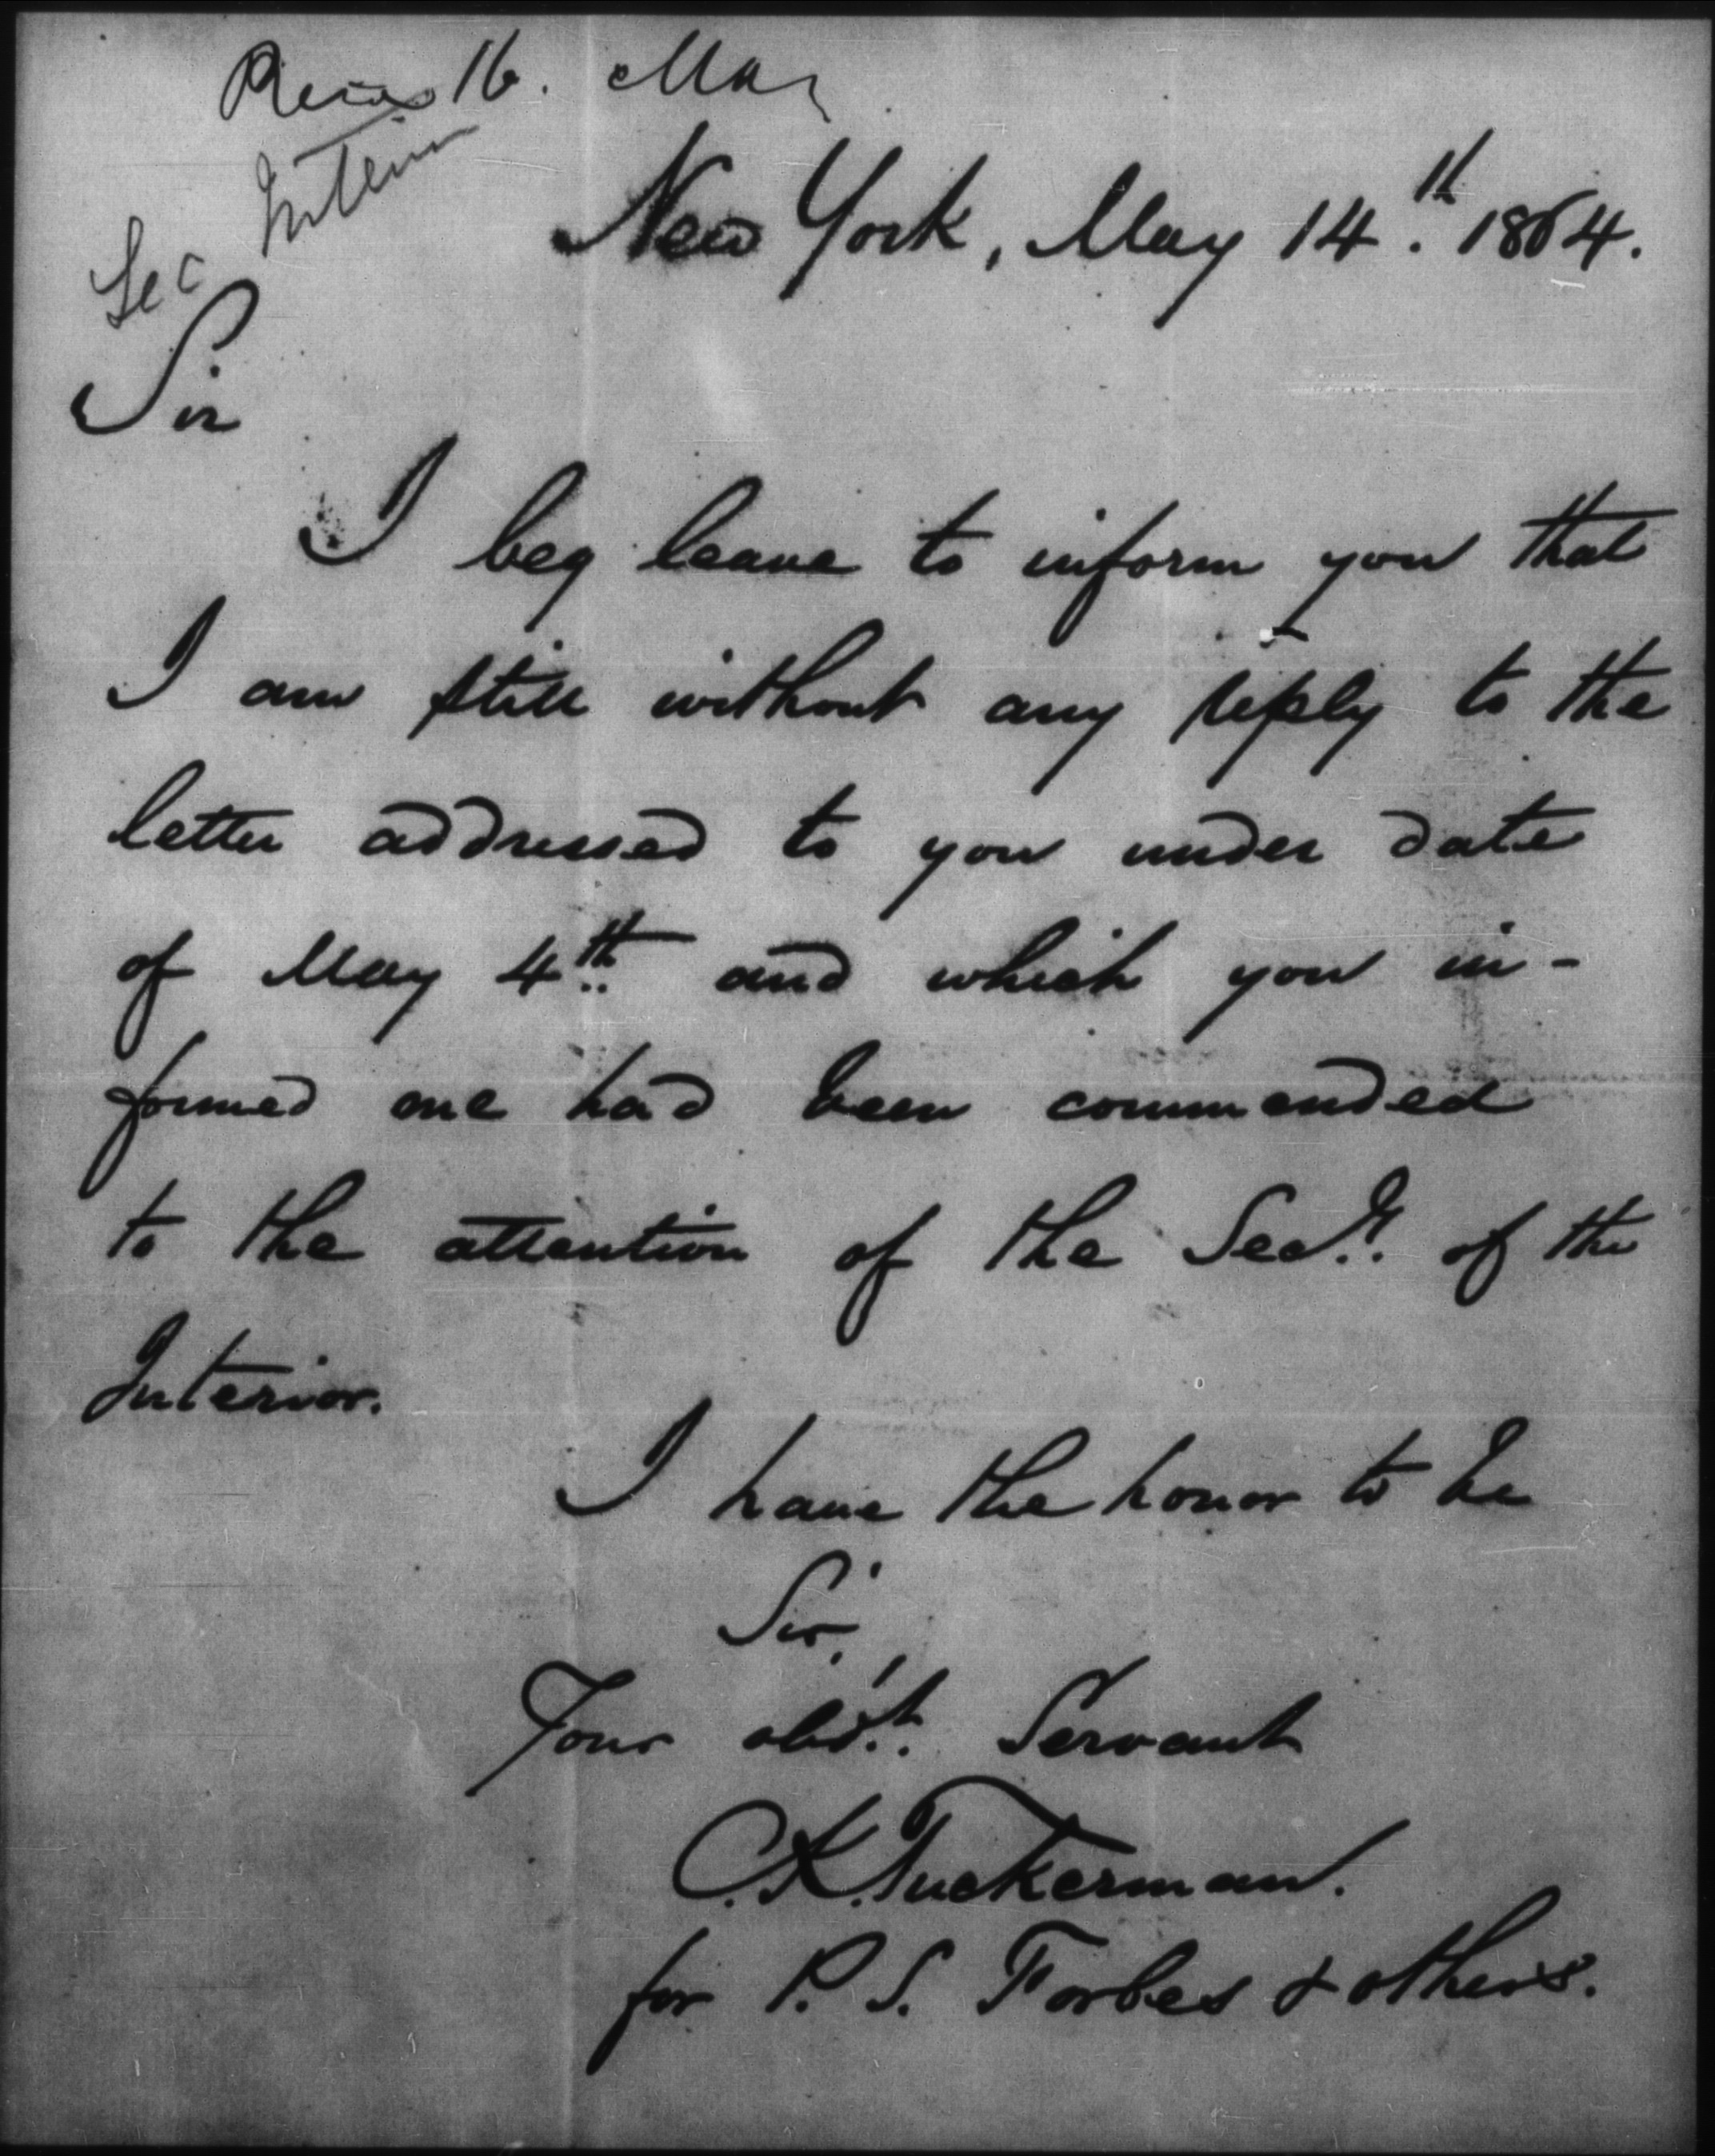 Recd 16. May
Sec Interior
New York, May 14.th 1864.
Sir
I beg leave to inform you that
I am still without any reply to the
letter addressed to you under date
of May 4th. and which you in-
formed me had been commended
to the attention of the Secy. of the
Interior.
I have the honor to be
Sir,
Your obd't. Servant
C. K. Tuckerman.
for P. S. Forbes & others.